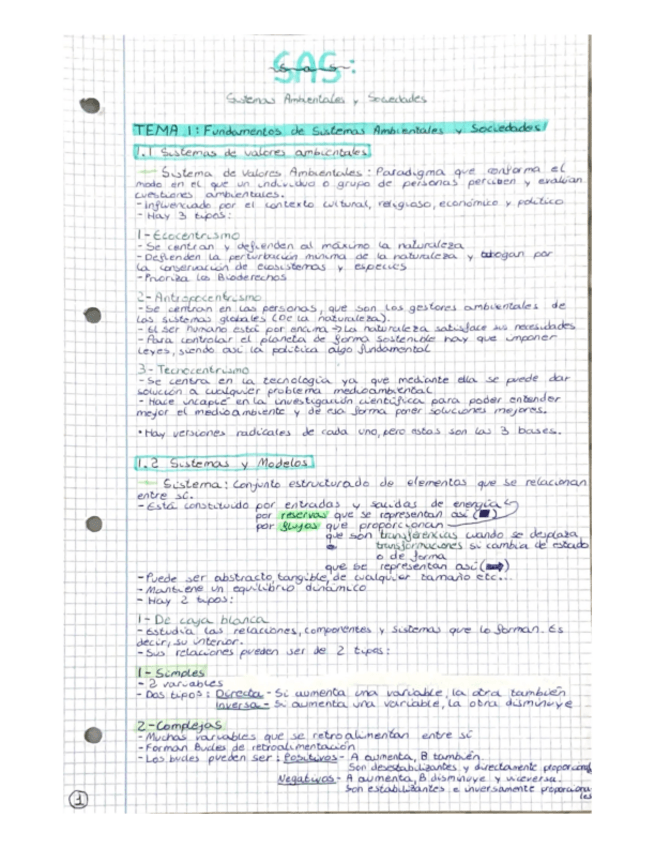 SAS:
Sistemas Ambientales y Sociedades
TEMA 1: Fundamentos de Sistemas Ambientales y Sociedades
1.1 Sistemas de valores ambientales
Sistema de Valores Ambientales: Paradigma que conforma el
modo en el que un individuo o grupo de personas perciben y evalúan
cuestiones ambientales.
- Influenciado por el contexto cultural, religioso, económico y político
- Hay 3 tipos:
1- Ecocentrismo
- Se centran y defienden al máximo la naturaleza
- Defienden la perturbación mínima de la naturaleza y abogan por
la conservación de ecosistemas y especies
- Prioriza los Bioderechos
2- Antropocentrismo
- Se centran en las personas, que son los gestores ambientales de
los sistemas globales (De la naturaleza).
- El ser humano está por encima → La naturaleza satisface sus necesidades
- Para controlar el planeta de forma sostenible hay que imponer
leyes, siendo así la política algo fundamental
3- Tecnocentrismo
- Se centra en la tecnología ya que mediante ella se puede dar
solución a cualquier problema medioambiental
- Hace incapié en la investigación científica para poder entender
mejor el medioambiente y de esa forma poner soluciones mejores.
• Hay versiones radicales de cada uno, pero estas son las 3 bases.
1.2 Sistemas y Modelos
Sistema: Conjunto estructurado de elementos que se relacionan
entre sí.
- Está constituido por entradas y salidas de energía
por reservas que se representan así (■)
por flujos que proporcionan
que son transferencias cuando se desplaza,
transformaciones si cambia de estado
o de forma
que se representan así (➡)
- Puede ser abstracto, tangible, de cualquier tamaño etc...
- Mantiene un equilibrio dinámico
- Hay 2 tipos:
1- De caja blanca
- Estudia las relaciones, componentes y sistemas que lo forman. Es
decir, su interior.
- Sus relaciones pueden ser de 2 tipos:
1- Simples
- 2 variables
- Dos tipos: Directa - Si aumenta una variable, la otra también
Inversa - Si aumenta una variable, la otra disminuye
2- Complejas
- Muchas variables que se retroalimentan entre sí
- Forman Bucles de retroalimentación
- Los bucles pueden ser: Positivos - A aumenta, B también.
Son desestabilizantes y directamente proporcional
Negativos - A aumenta, B disminuye y viceversa.
Son estabilizantes e inversamente proporciona
les
1